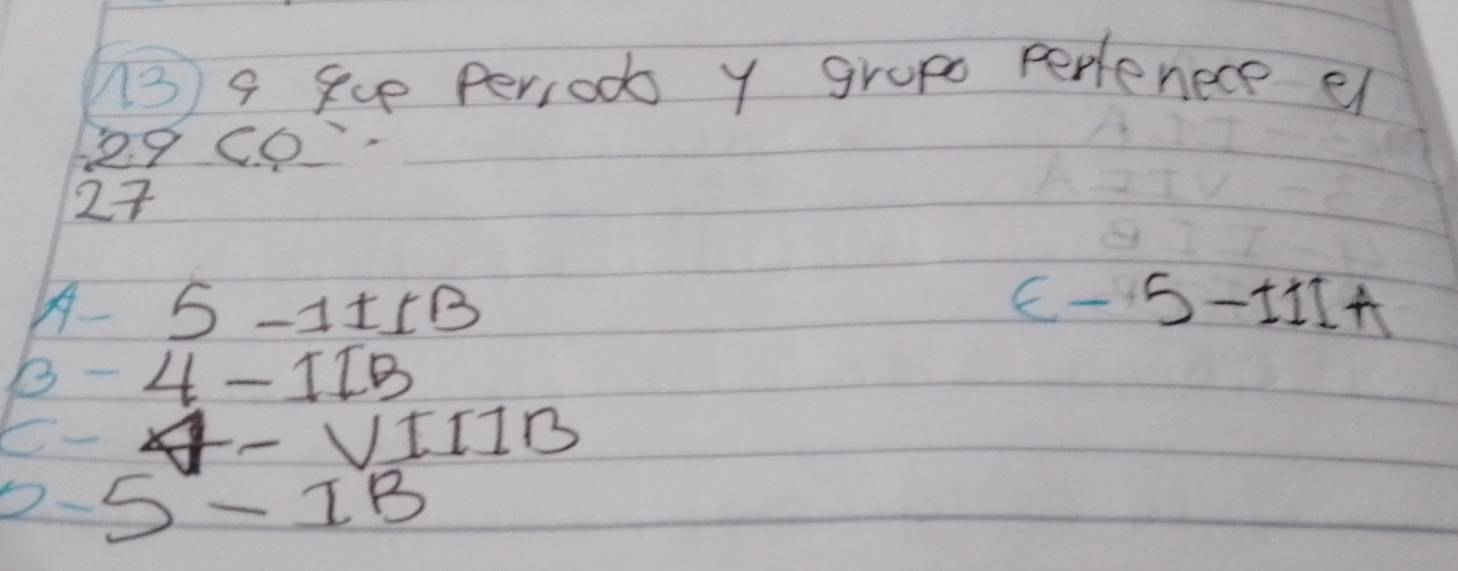 13 a que periodo y grupo pertenece el
29 CO
27
A- 5 - IIIB
E - 5 - IIIA
B - 4 - IIB
C - 4 - VIIIB
D - 5 - IB